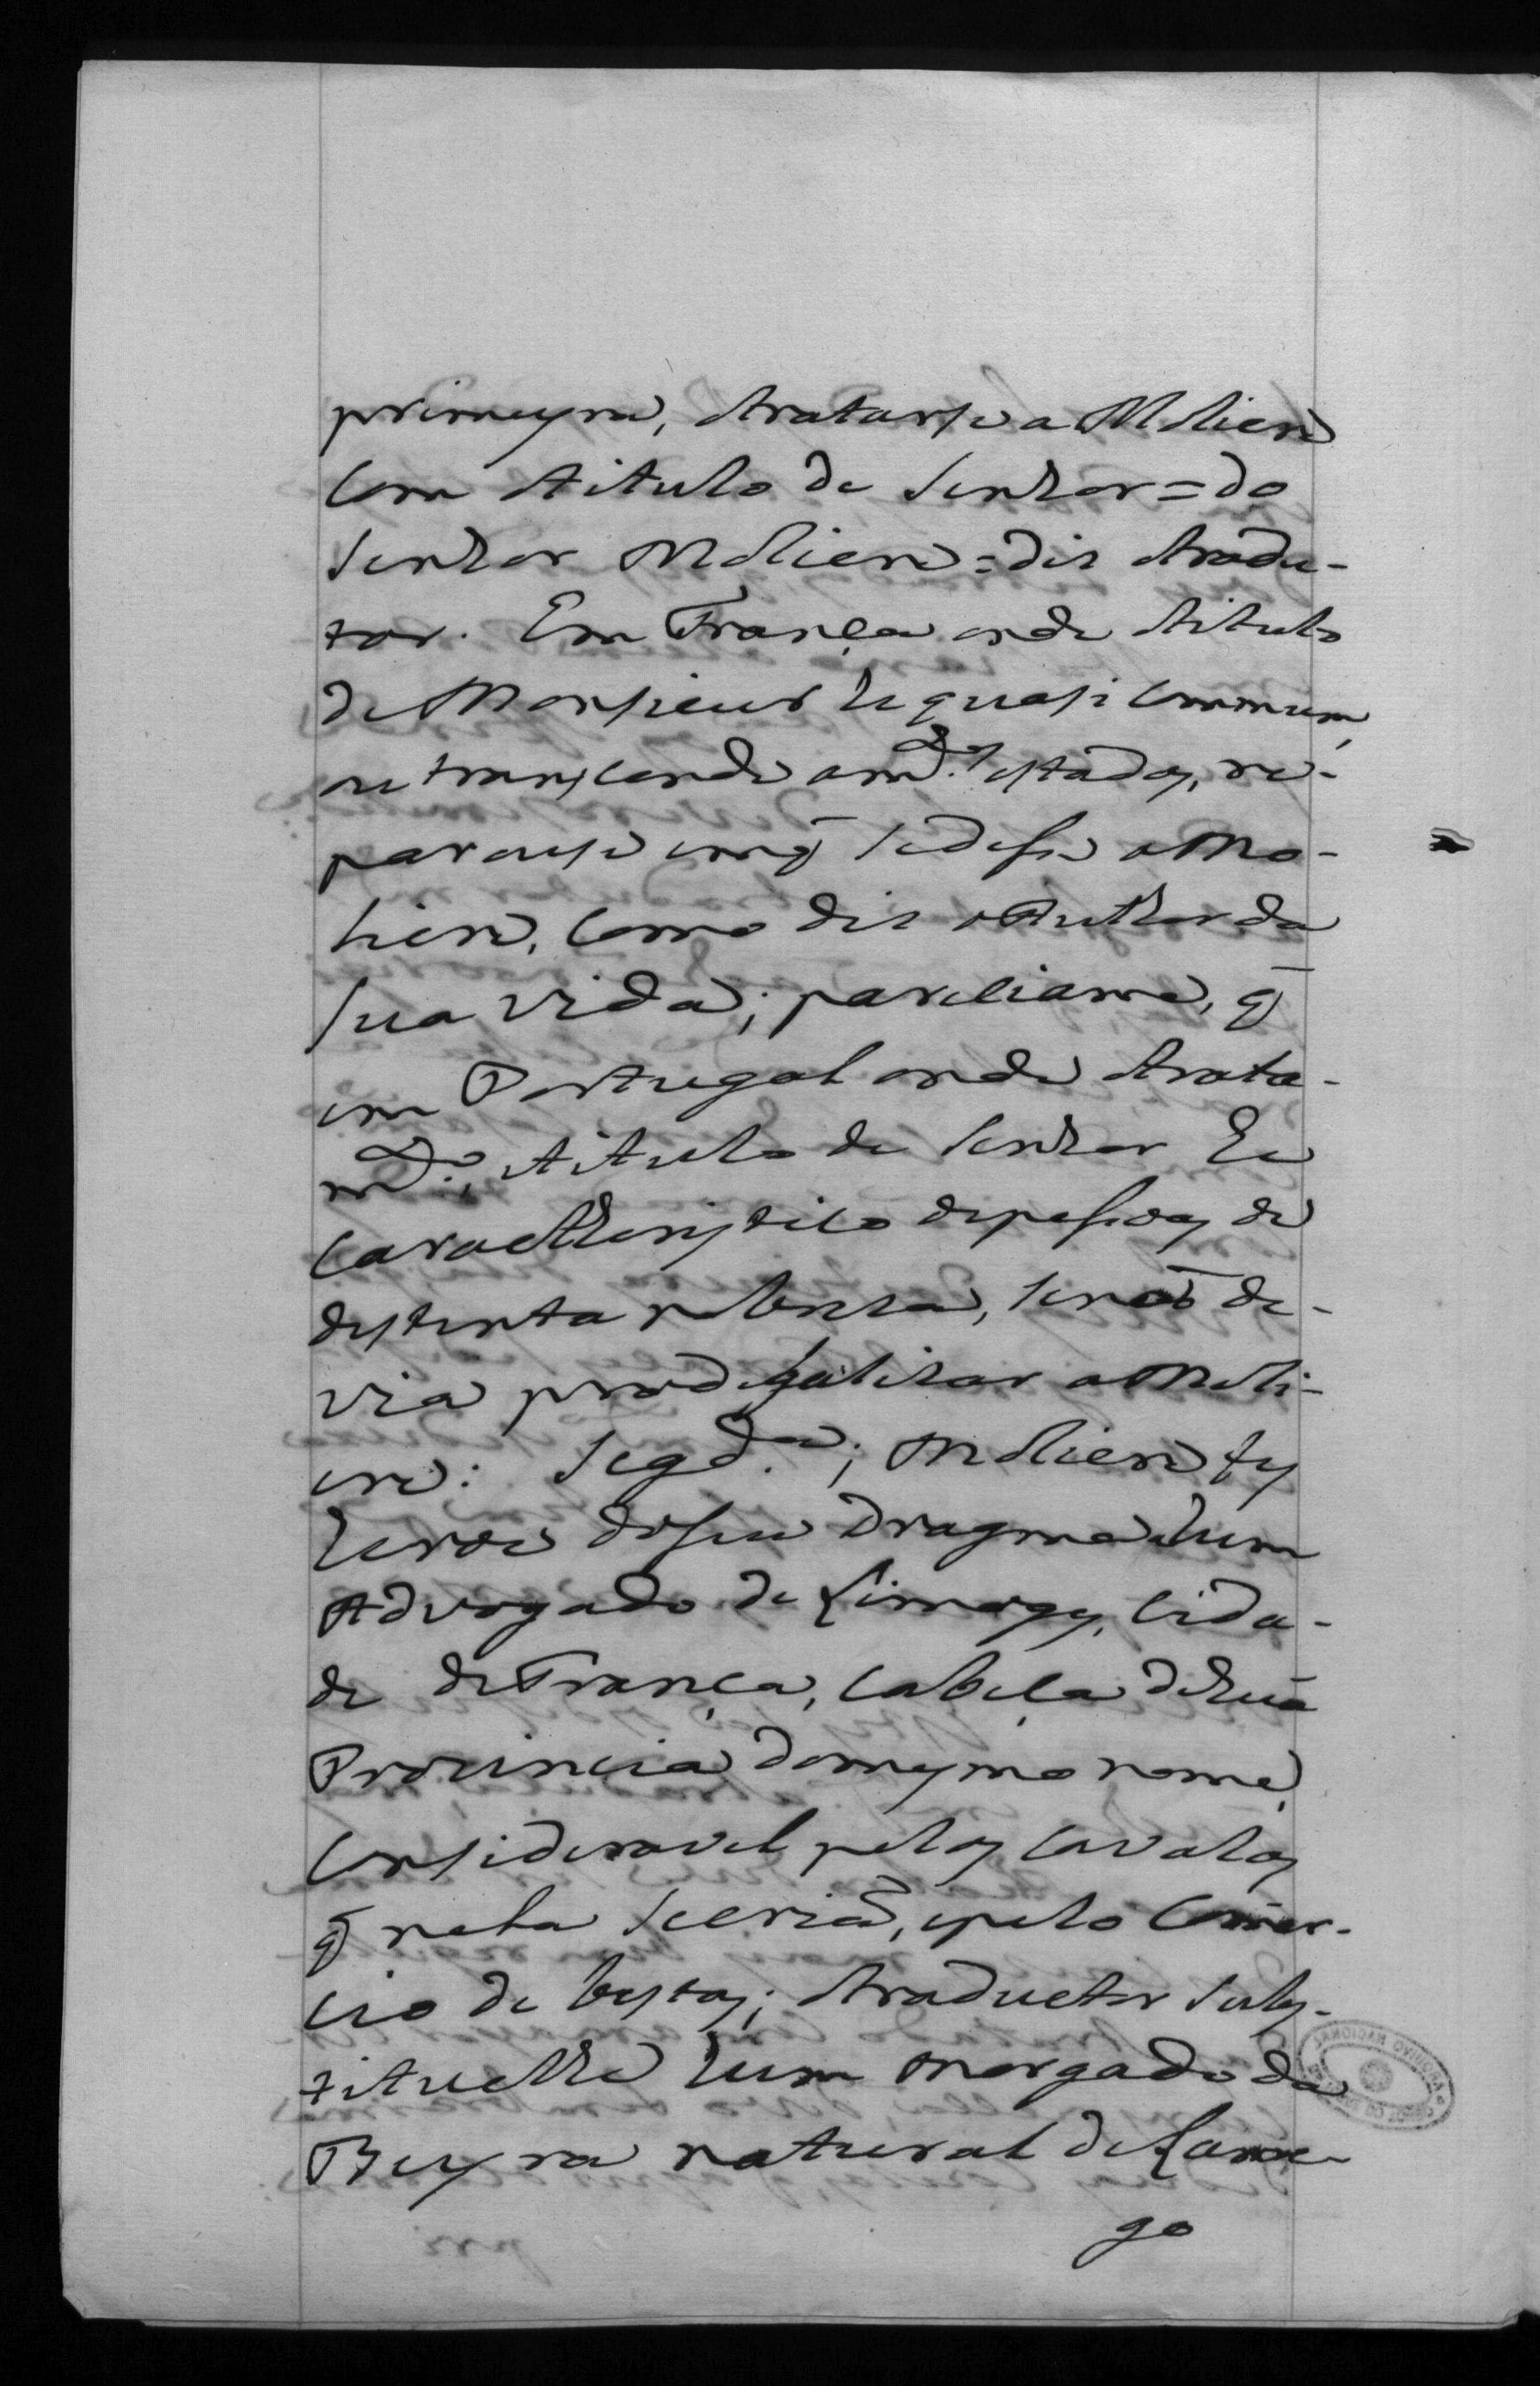 primeyra, otratarse a Moliere
com otitulo de Senhor=do
Senhor Moliere=diz otradu-
tor. Em França onde otitulo
de Monsieur he quasi commum,
e transcende a md.ˢ estados, re-
parouse emq̃ sedesse a Mo-
liere, como diz o Author da
sua vida; pareciame, q̃
em Portugal onde otrata-
md.º, etitulo de Senhor he
caractheristico depessoas de
destinta nobreza, senaõ de-
via prodigalizar a Moli-
ere: Segd.ᵃ; Moliere fes
heroe doseu Dragma hum
Advogado de Limoges, cida-
de de França, cabeça de huã
Provincia domesmo nome,
consideravel pelos cavalos
q̃ nella secriaõ, epelo Comer-
cio de bestas; otraductor subs-
tituelhe hum morgado da
Beyra natural de Lame-
go
ARQUIVO NACIONAL